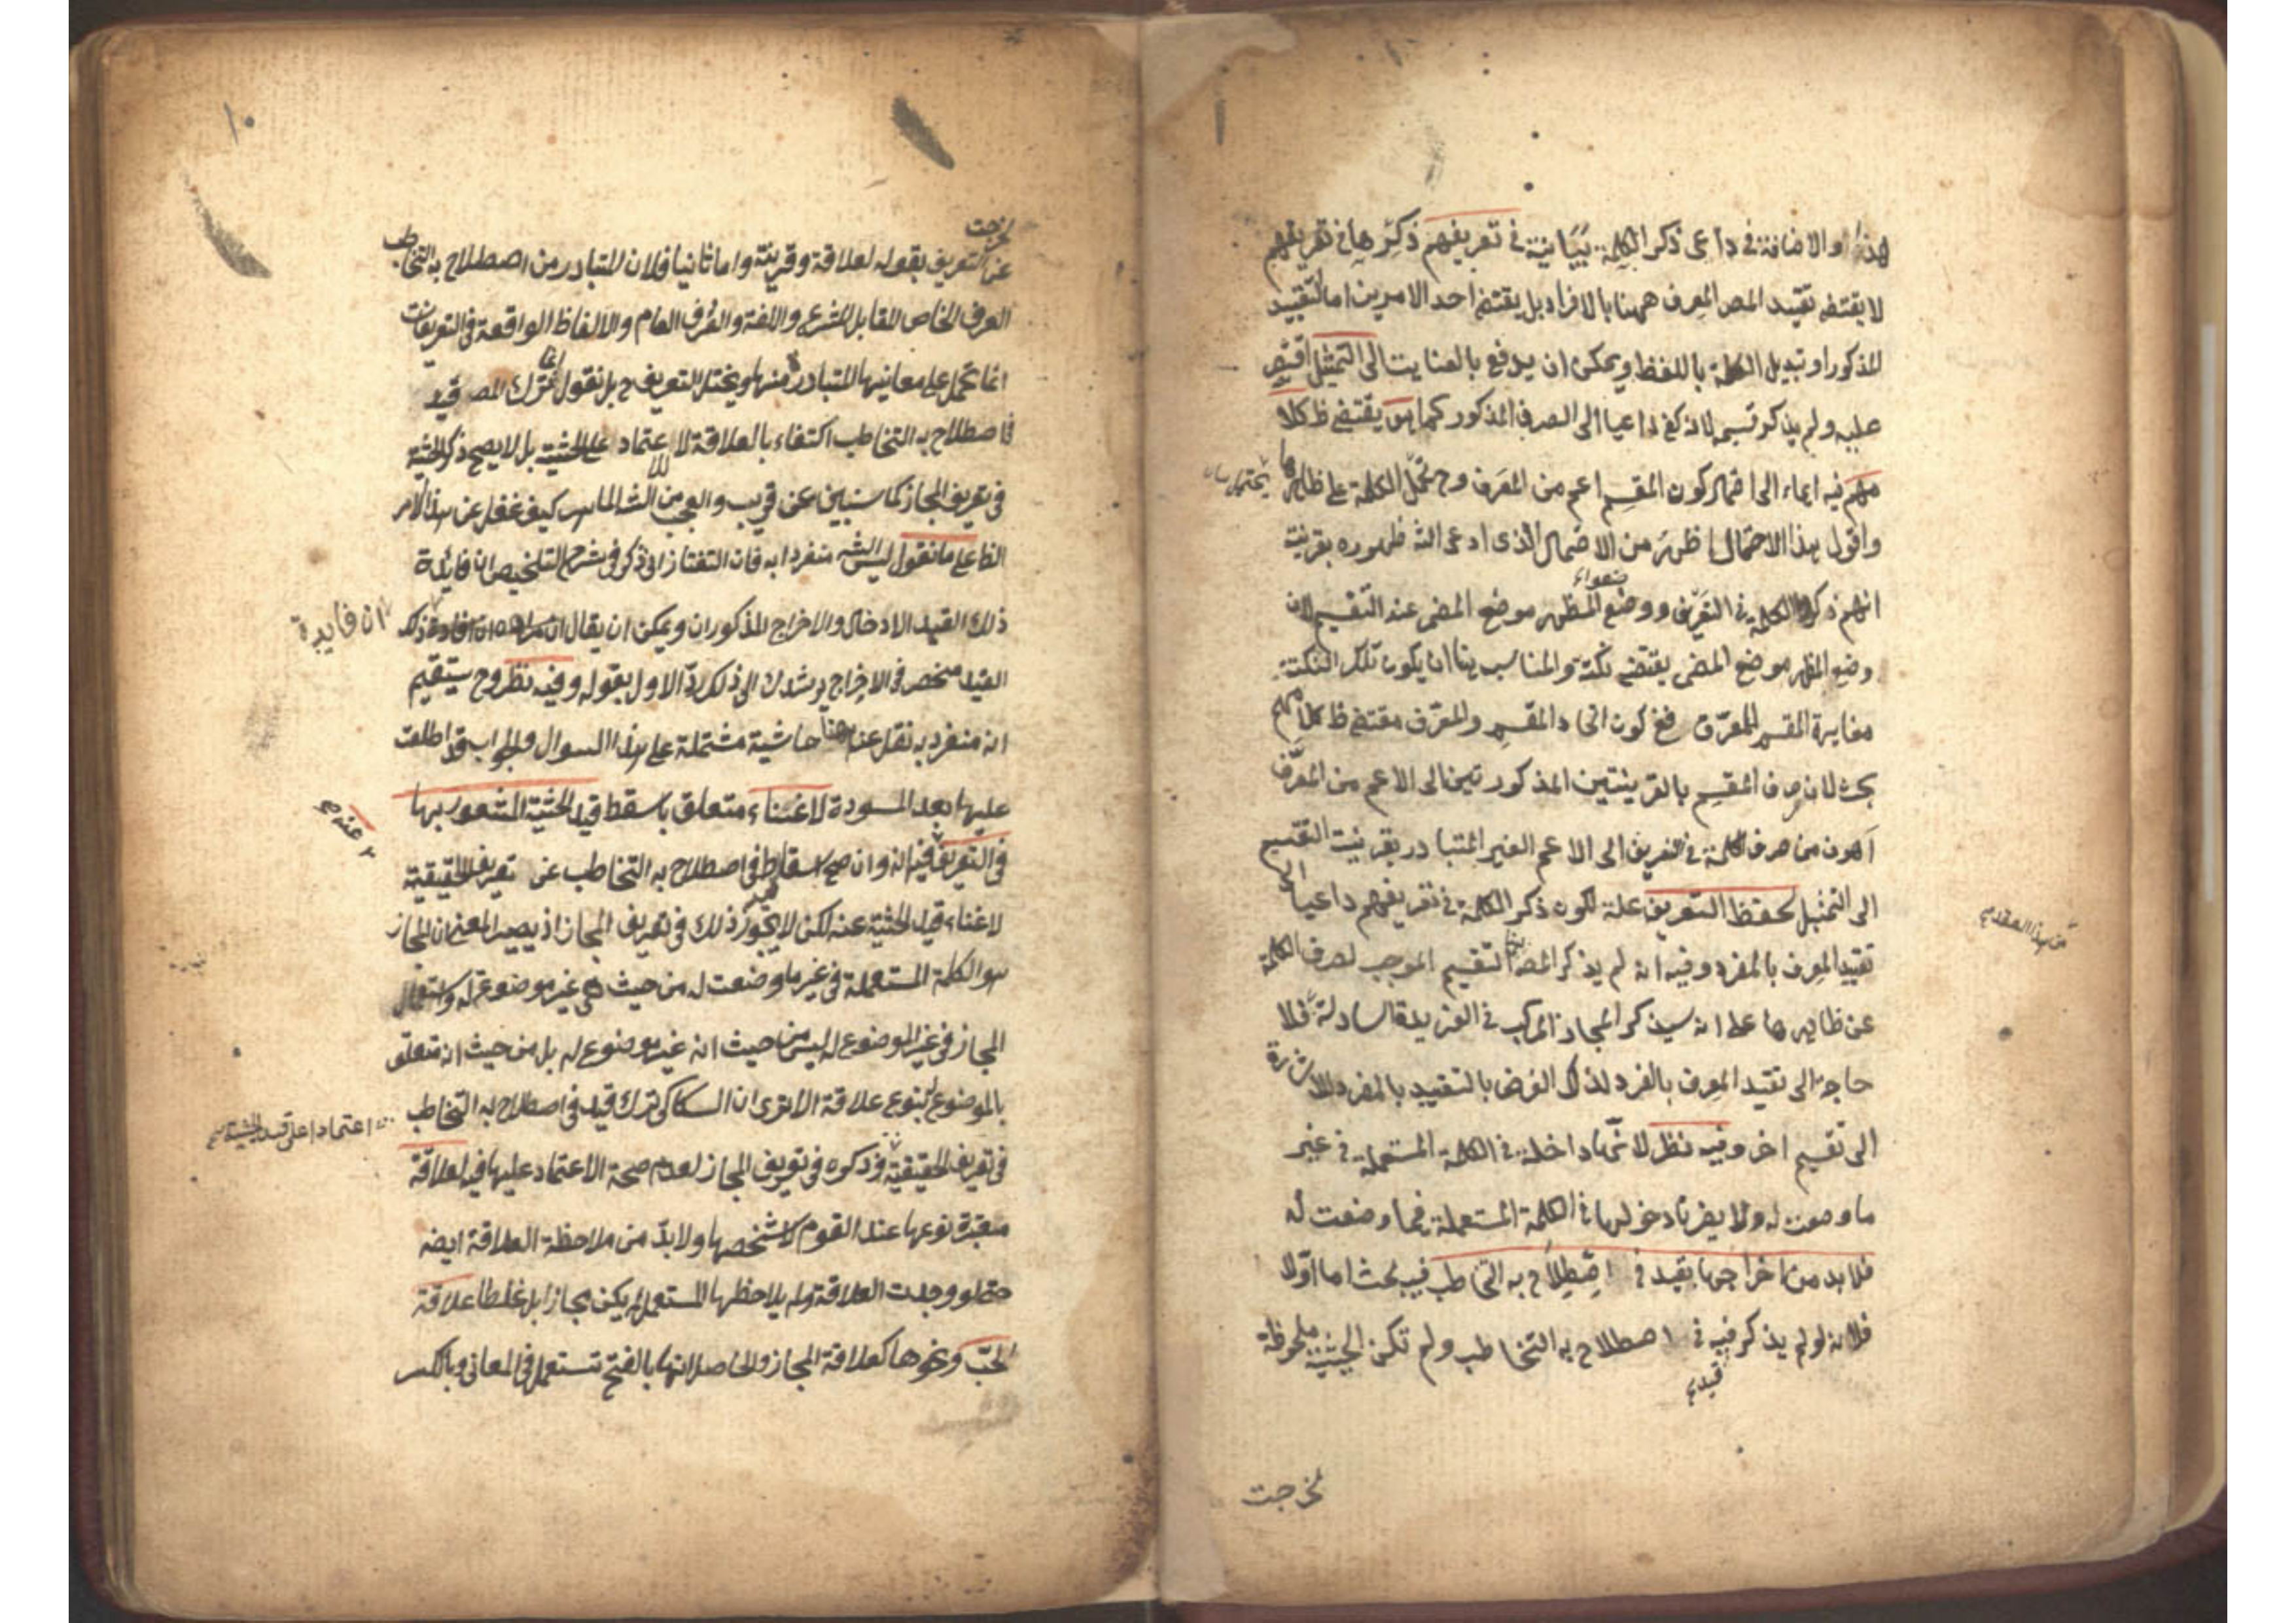 هذا والاضافة في داعى ذكر الكلمة بيانية في تعريفهم ذكرها في تعريفهم
لا يقتضى تقييد المص المعرف ههنا بالافراد بل يقتضى احد الامرين اما التقييد
المذكور او تبديل الكلمة باللفظ ويمكن ان يدفع بالعناية الى التمثيل اقتصر
عليه ولم يذكر قسيمه لانه كفى داعيا الى الصرف المذكور كما مر يقتضى ظ كلا
مهم فيه ايماء الى احتمال كون المقسم اعم من المعرف وح تحمل الكلمة على ظاهرها
واقول هذا الاحتمال اظهر من الاحتمال الذى ادعى الش ظهوره بقرينة
انهم ذكروا الكلمة في التعريف ووضعوا المظهر موضع المضمر عند التقسيم لان
وضع المظهر موضع المضمر يقتضى نكتة والمناسب هنا ان يكون تلك النكتة
مغايرة المقسم للمعرف ففى كون اتحاد المقسم والمعرف مقتضى ظ كلامهم
بحث لان صرف المقسم بالقرينتين المذكورتين الى الاعم من المعرف
اهون من صرف الكلمة في التعريف الى الاعم الغير المتبادر بقرينة التقسيم
الى التمثيل لحفظ التعريف علة لكون ذكر الكلمة في تعريفهم داعيا الى
تقييد المعرف بالمفرد وفيه انه لم يذكر المص التقسيم الموجب لصرف الكلمة
عن ظاهرها على انه سيذكر المجاز المركب في الفريدة السادسة فلا
حاجة الى تقييد المعرف بالمفرد لذلك الغرض بالتقييد بالمفرد للاشارة
الى تقسيم اخر وفيه نظر لانها داخلة في الكلمة المستعملة في غير
ما وضعت له ولا يضرنا دخولها في الكلمة المستعملة فيما وضعت له
فلا بد من اخراجها بقيد في اصطلاح به التخاطب فيه بحث اما اولا
فلانه لو لم يذكر فيه في اصطلاح به التخاطب ولم تكن الحيثية ملحوظة
قيد
لخرجت
١٠
لخرجت
عن التعريف بقوله لعلاقة وقرينة واما ثانيا فلان المتبادر من اصطلاح به التخاطب
العرف الخاص المقابل للشرع واللغة والعرف العام والالفاظ الواقعة في التعريفات
انما تحمل على معانيها المتبادرة منها ويختل التعريف ح بل نقول انما ترك المص قيد
فى اصطلاح به التخاطب اكتفاء بالعلاقة لا للاعتماد على الحيثية بل لا يصح ذكر الحيثية
في تعريف المجاز كما سنبين عن قريب والعجب من الش الماهر كيف غفل عن هذا الامر
الظ على ما نقول ليس الش منفردا به فان التفتازانى ذكر في شرح التلخيص ان فائدة
ذلك القيد الادخال والاخراج المذكوران ويمكن ان يقال ان مراده ان افادة ذلك
ان فايدة
القيد منحصر في الاخراج يرشدك الى ذلك رد الاول بقوله وفيه نظر وح يستقيم
انه منفرد به نقل عنه هنا حاشية مشتملة على هذا السوال والجواب قد اطلعت
عليها بعد المسودة لاغناء متعلق باسقط قيد الحيثية المشعور بها
في التعريف فيه انه وان صح اسقاط في اصطلاح به التخاطب عن تعريف الحقيقة
لاغناء قيد الحيثية عنه لكن لا يجوز ذلك في تعريف المجاز اذ يصير المعنى ان المجاز
هو الكلمة المستعملة في غير ما وضعت له من حيث هى غير موضوعة له واستعمال
المجاز في غير الموضوع له ليس من حيث انه غير موضوع له بل من حيث انه متعلق
بالموضوع له بنوع علاقة الا ترى ان السكاكى ترك قيد في اصطلاح به التخاطب
اعتمادا على قيد الحيثية
في تعريف الحقيقة وذكره في تعريف المجاز لعدم صحة الاعتماد عليها فيه لعلاقة
معتبرة نوعها عند القوم لا شخصها ولا بد من ملاحظة العلاقة ايضه
حتى لو وجدت العلاقة ولم يلاحظها المستعمل لم يكن مجازا بل غلطا علاقة
الحب ونحوها كعلاقة المجاز والحاصل انها بالفتح تستعمل في المعانى وبالكسر